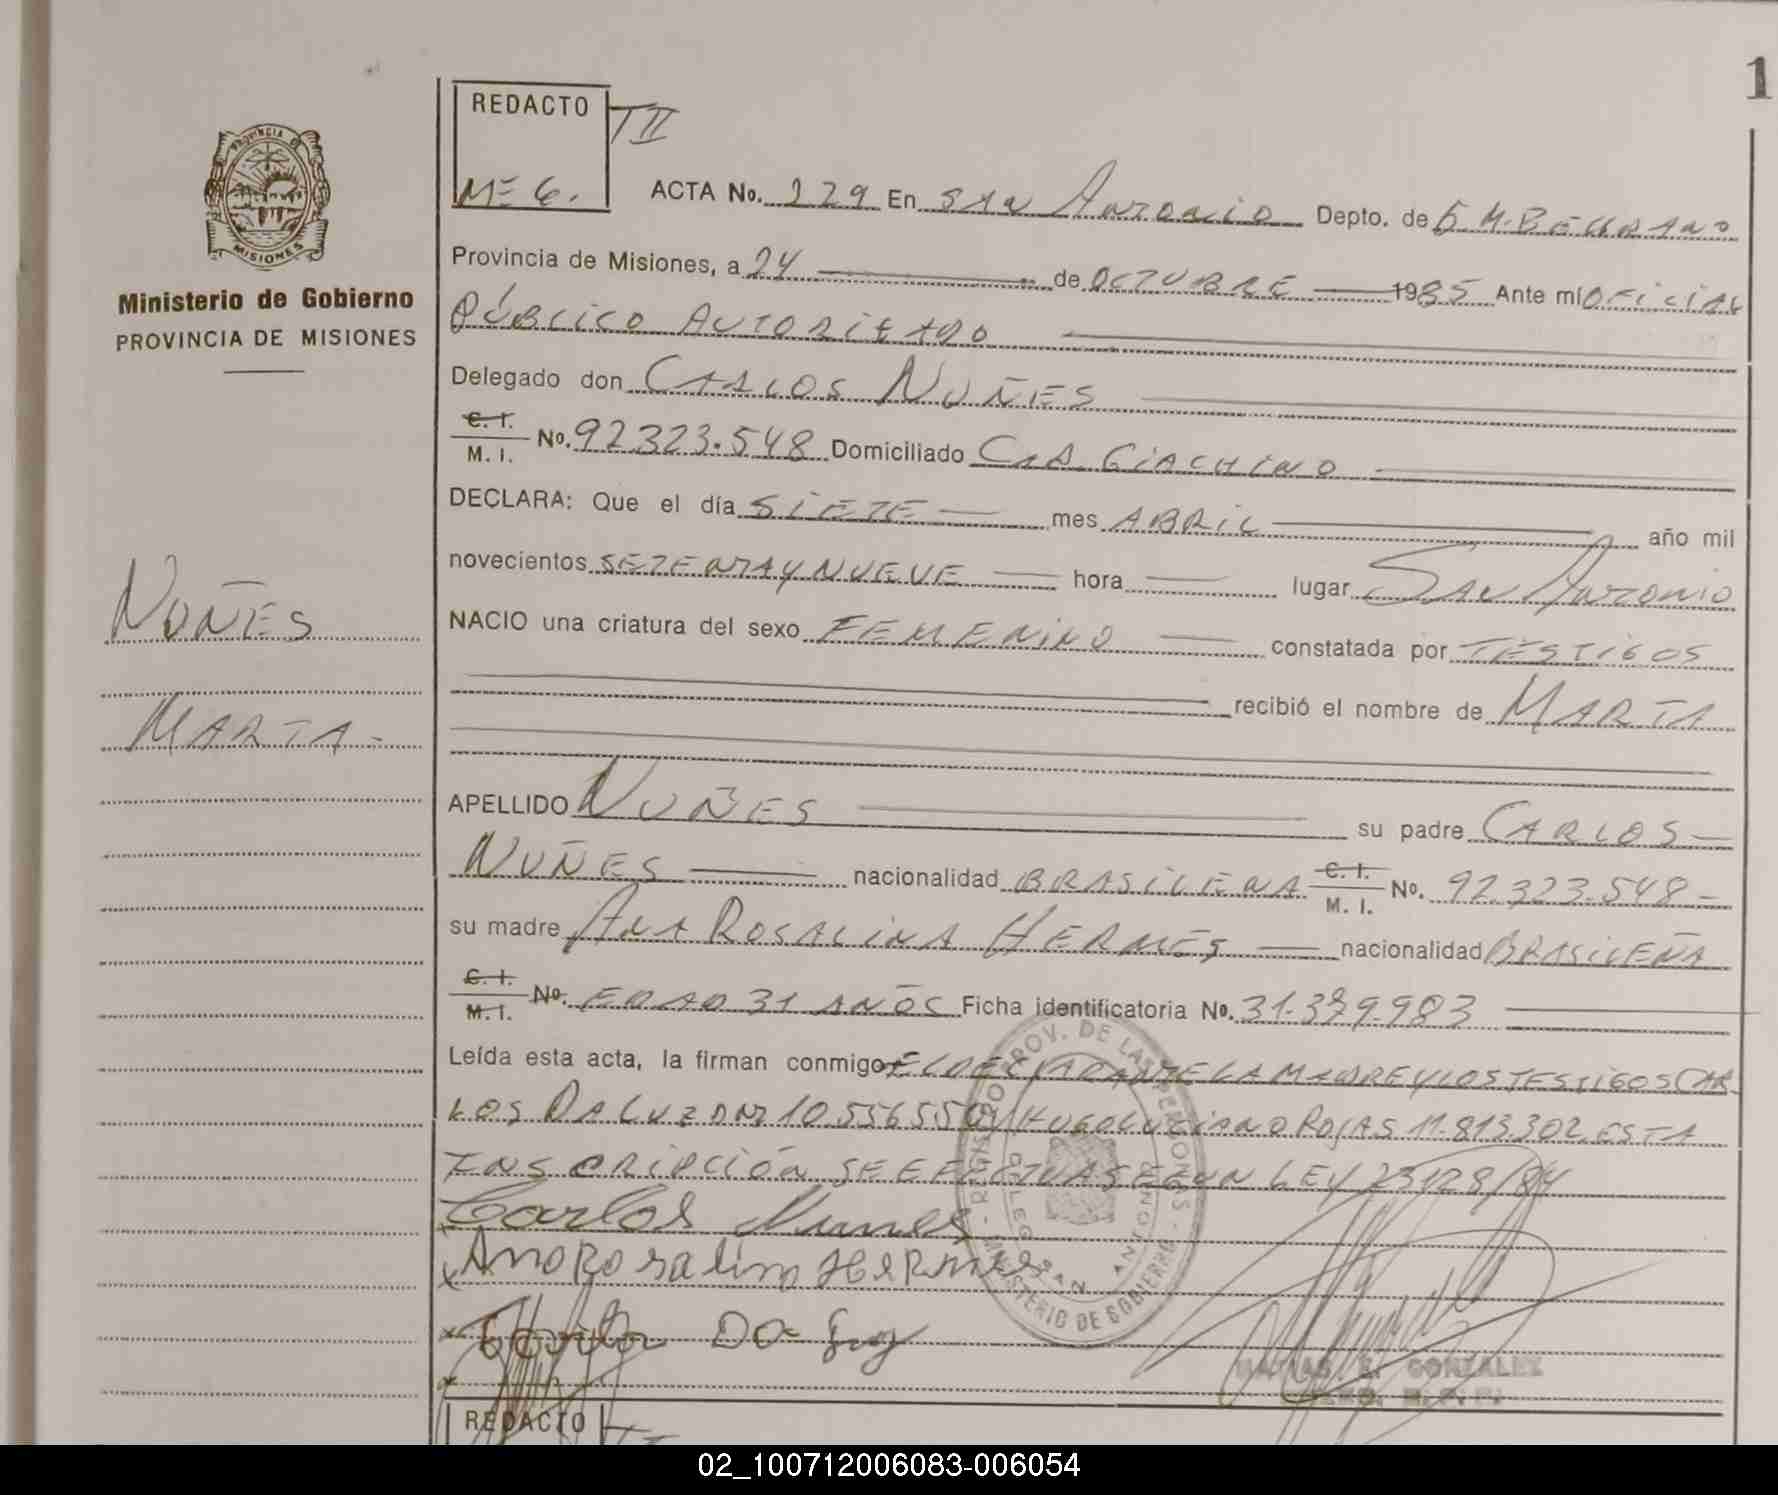 1
REDACTO
T II
MEG.
PROVINCIA DE
MISIONES
Ministerio de Gobierno
PROVINCIA DE MISIONES
ACTA No. 229 En SAN ANTONIO Depto. de G. M. BELGRANO
Provincia de Misiones, a 24 de OCTUBRE 1985 Ante mí OFICIAL
PÚBLICO AUTORIZADO
Delegado don CARLOS NUÑES
C. I. / M. I. No. 92.323.548 Domiciliado CAP. GIACHINO
DECLARA: Que el día SIETE mes ABRIL año mil
novecientos SETENTA Y NUEVE hora lugar SAN ANTONIO
NACIO una criatura del sexo FEMENINO constatada por TESTIGOS
recibió el nombre de MARTA
NUÑES
MARTA-
APELLIDO NUÑES su padre CARLOS
NUÑES nacionalidad BRASILENA C. I. / M. I. No. 92.323.548
su madre ANA ROSALINA HERMES nacionalidad BRASILEÑA
C. I. / M. I. No. EDAD 31 AÑOS Ficha identificatoria No. 31.379.983
Leída esta acta, la firman conmigo EL DECLARANTE LA MADRE Y LOS TESTIGOS CAR
LOS DA LUZ DNI 10.556.550 Y HUGO LUCIANO ROJAS 11.813.302 ESTA
INSCRIPCIÓN SE EFECTUA SEGUN LEY 23128/84
Carlos Nunes
Ana Rosalina Hermes
Da Luz
REGISTRO PROV. DE LAS PERSONAS - MINISTERIO DE GOBIERNO
DELEG. SAN ANTONIO
MATIAS E. GONZALEZ
REDACTO
02_100712006083-006054